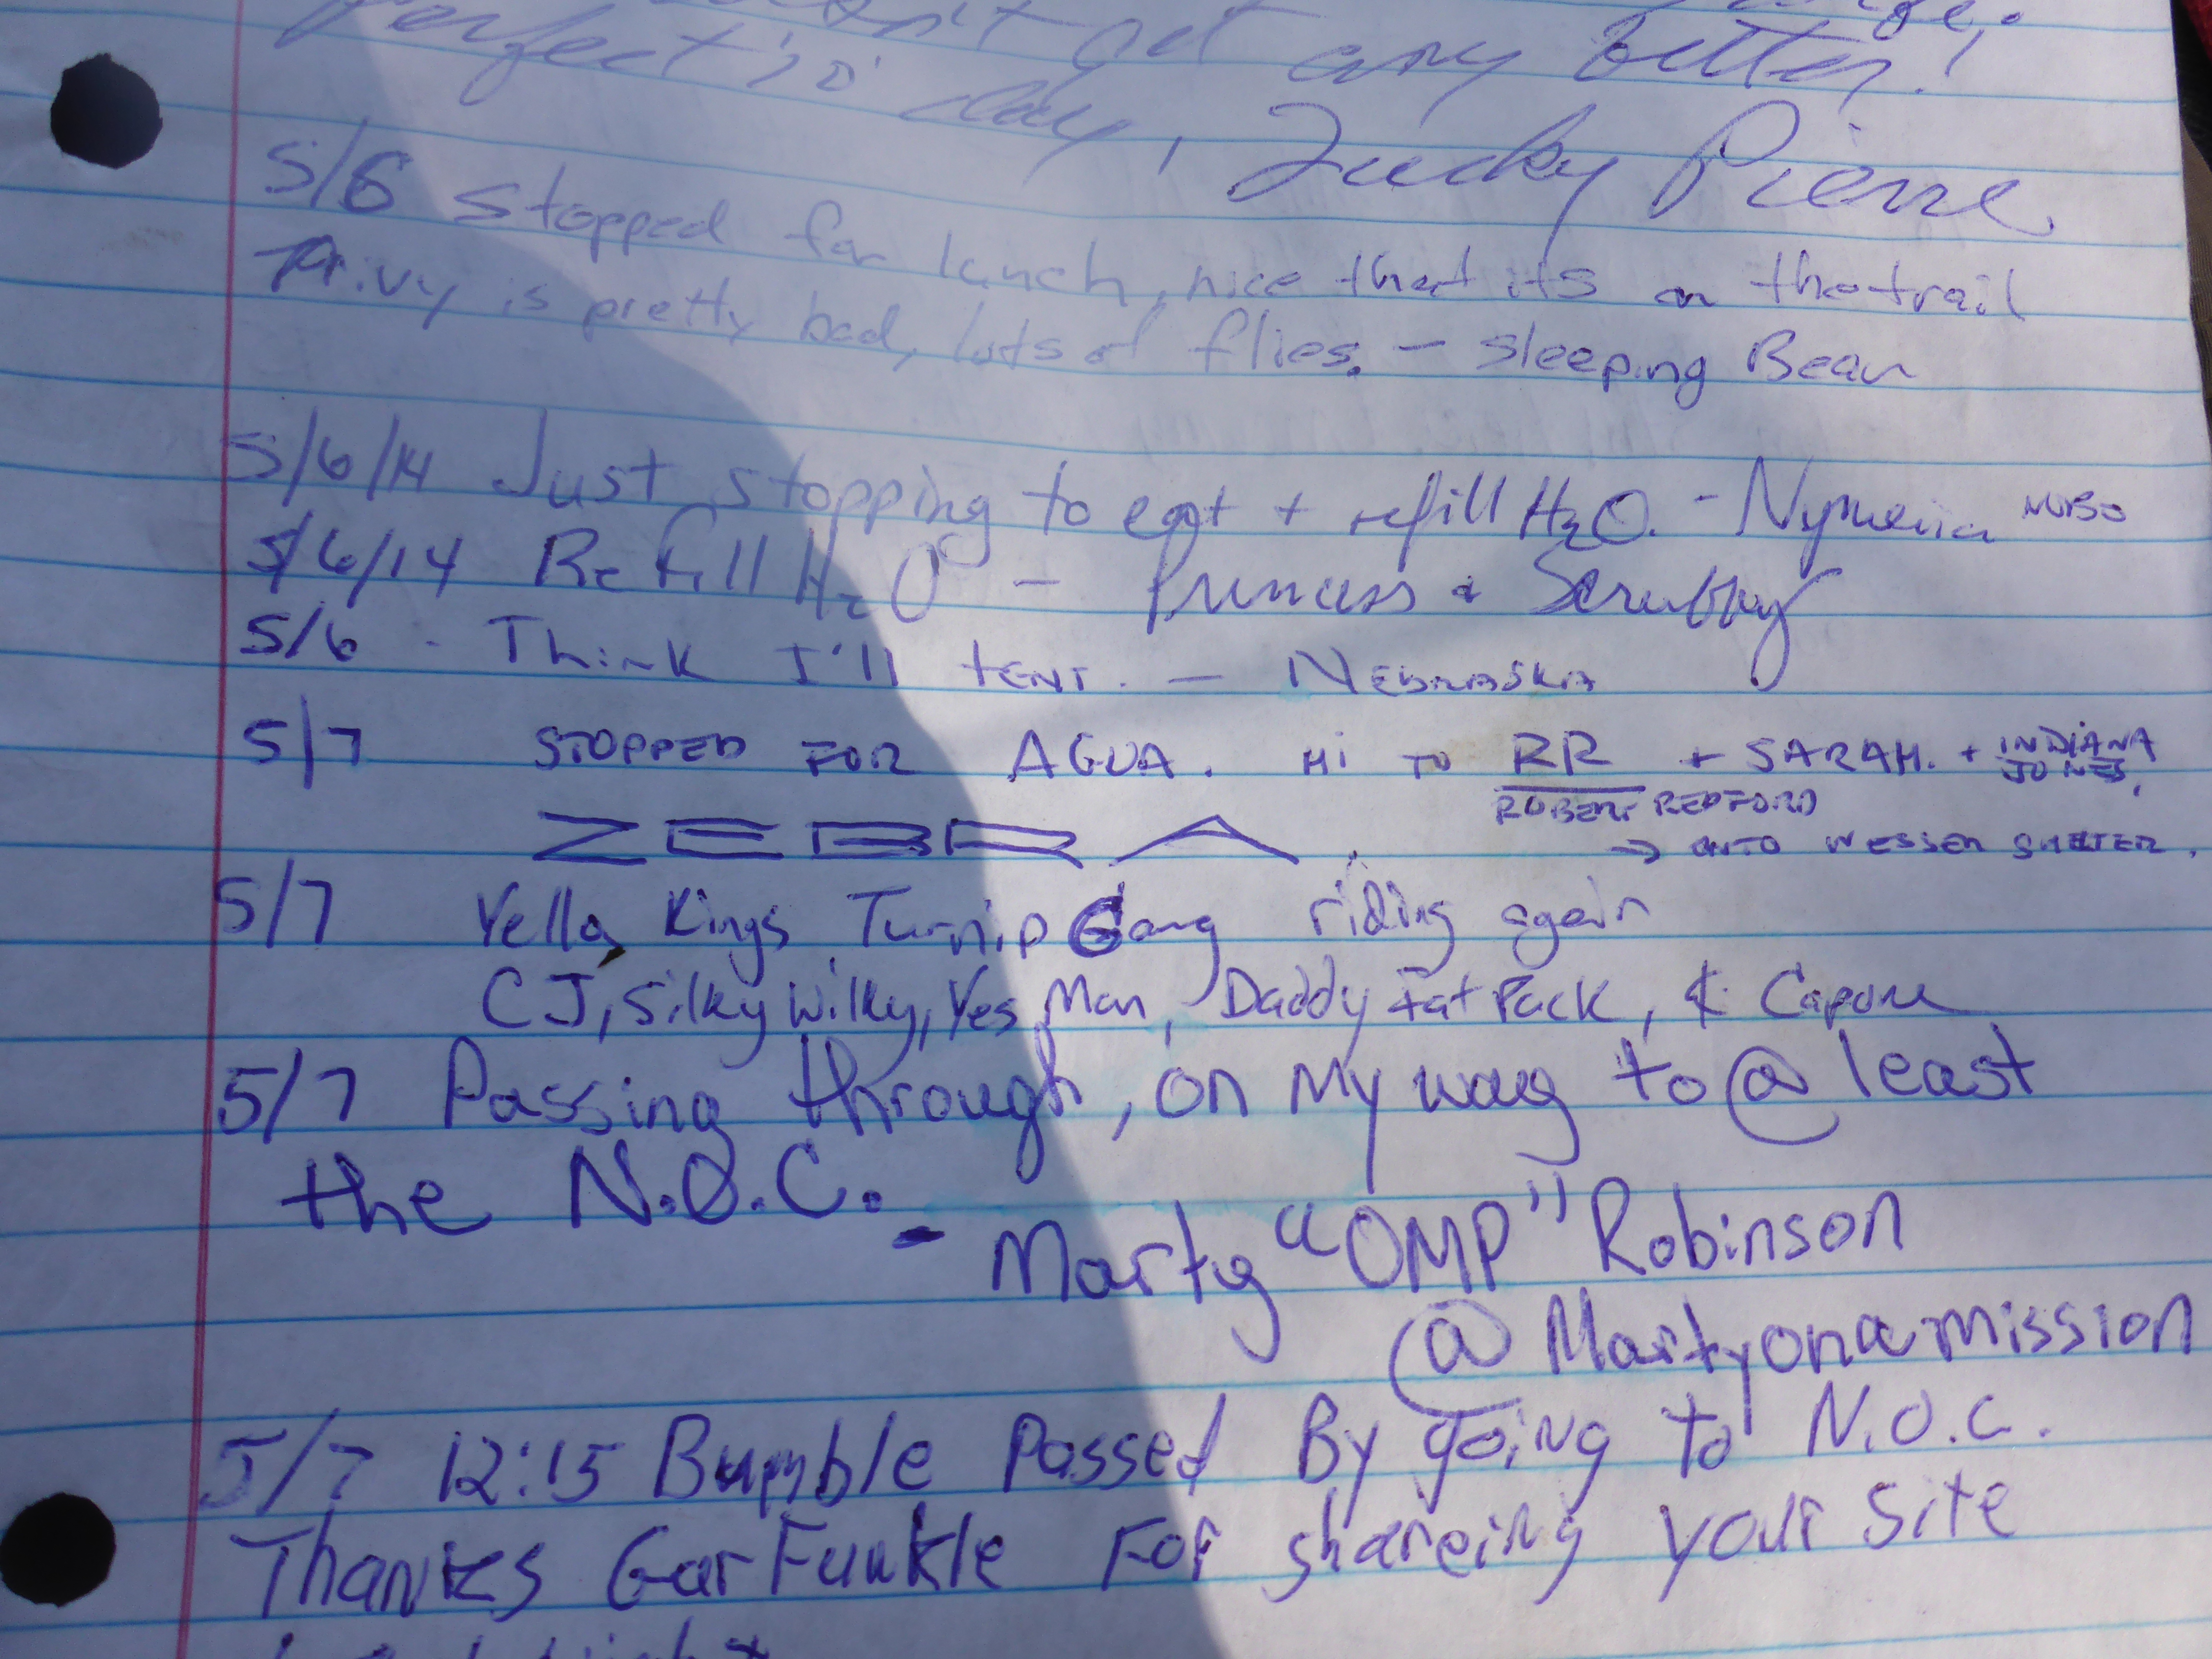 get any better!
Perfect 'o' day, Lucky Pierre
5/6 Stopped for lunch, nice that its on the trail
Privy is pretty bad, lots of flies. - Sleeping Bear
5/6/14 Just stopping to eat + refill H2O. - Nymeria NOBO
5/6/14 Refill H2O - Princess & Scrubby
5/6 - Think I'll tent. - Nebraska
5/7 STOPPED FOR AGUA. HI TO RR + SARAH. + INDIANA JONES,
ROBERT REDFORD
ZEBRA. → ONTO WESSER SHELTER.
5/7 Yella Kings Turnip Gang riding again
CJ, Silky Wilky, Yes Man, Daddy Fat Pack, & Capone
5/7 Passing through, on my way to @ least
the N.O.C. - Marty "OMP" Robinson
@Martyonamission
5/7 12:15 Bumble Passed By going to N.O.C.
Thanks GarFunkle For shareing your site